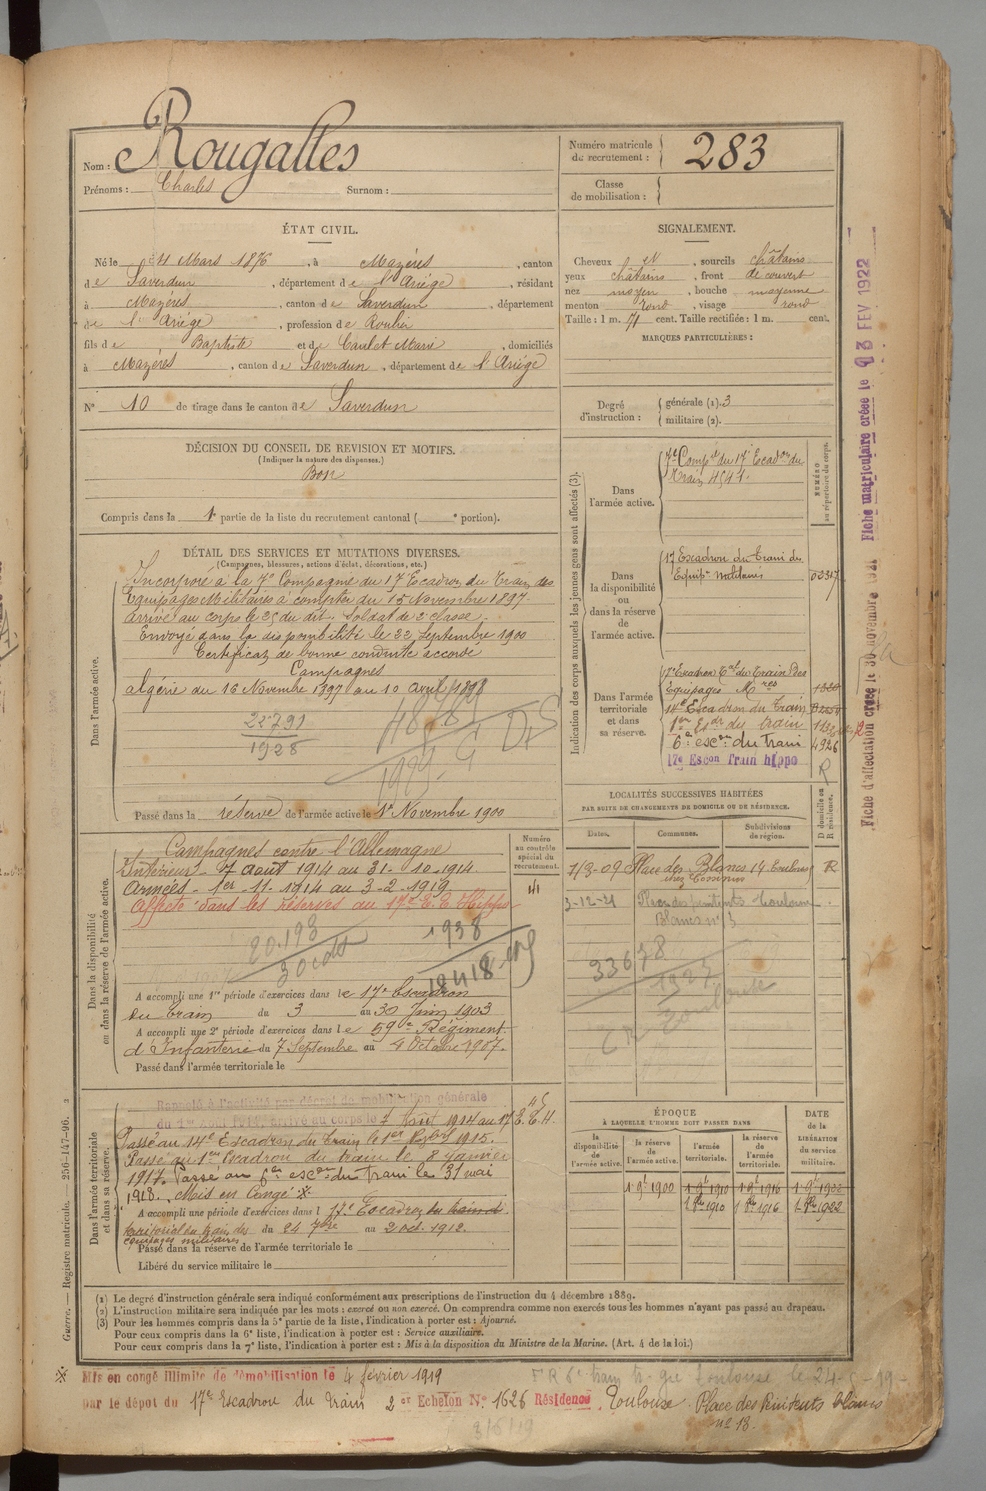 Nom : Rougalles
Prénoms : Charles Surnom :
Numéro matricule du recrutement : 283
Classe de mobilisation :
ÉTAT CIVIL.
Né le 11 Mars 1876, à Mazères, canton
de Saverdun, département de l'Ariège, résidant
à Mazères, canton de Saverdun, département
de l'Ariège, profession de Roulier
fils de Baptiste et de Caulet Marie, domiciliés
à Mazères, canton de Saverdun, département de l'Ariège
N° 10 de tirage dans le canton de Saverdun
SIGNALEMENT.
Cheveux N, sourcils châtains
yeux châtains, front découvert
nez moyen, bouche moyenne
menton rond, visage rond
Taille : 1 m. 71 cent. Taille rectifiée : 1 m. cent.
MARQUES PARTICULIÈRES :
Degré d'instruction : générale (1). 3
militaire (2).
DÉCISION DU CONSEIL DE REVISION ET MOTIFS.
(Indiquer la nature des dispenses.)
Bon
Compris dans la 1e partie de la liste du recrutement cantonal ( e portion).
DÉTAIL DES SERVICES ET MUTATIONS DIVERSES.
(Campagnes, blessures, actions d'éclat, décorations, etc.)
Dans l'armée active.
Incorporé à la 7e Compagnie du 17e Escadron du Train des
Equipages Militaires à compter du 15 Novembre 1897.
Arrivé au corps le 25 du dit. Soldat de 2e classe.
Envoyé dans la disponibilité le 22 Septembre 1900
Certificat de bonne conduite accordé
Campagnes
Algérie du 16 Novembre 1897 au 10 avril 1898
22791
1928
Passé dans la réserve de l'armée active le 1er Novembre 1900
Indication des corps auxquels les jeunes gens sont affectés (3).
NUMÉRO au répertoire du corps.
Dans l'armée active.
7e Compie du 17e Escadon du
Train 4541.
Dans la disponibilité ou dans la réserve de l'armée active.
17 Escadron du Train des
Equip. militaires 02317
Dans l'armée territoriale et dans sa réserve.
17e Escadron Tal du Train des
Equipages Mres 1320
14e Escadron du Train
1er Esdr du train
6e escon du train 4926
17e Escon Train hippo
R
Dans la disponibilité ou dans la réserve de l'armée active.
Numéro au contrôle spécial du recrutement.
Campagnes contre l'Allemagne
Intérieur - 7 août 1914 au 31-10-1914.
Armées - 1er-11-1914 au 3-2-1919
Affecté dans les réserves au 17e E.E. Hippo
20.193
1938
A accompli une 1re période d'exercices dans le 17e Escadron
du Train du 3 au 30 Juin 1903
A accompli une 2e période d'exercices dans le 59e Régiment
d'Infanterie du 7 Septembre au 4 Octobre 1907.
Passé dans l'armée territoriale le
LOCALITÉS SUCCESSIVES HABITÉES
PAR SUITE DE CHANGEMENTS DE DOMICILE OU DE RÉSIDENCE.
Dates. Communes. Subdivisions de région. D domicile ou R résidence.
7/3-09 Place des Blancs 14 Toulouse R
chez Commes
3-12-21 Place des pénitents Toulouse
Blancs n° 3
33678
1927
CR Toulouse
Dans l'armée territoriale et dans sa réserve.
Rappelé à l'activité par décret de mobilisation générale
du 1er Août 1914. Arrivé au corps le 7 Août 1914 au 17e E.T.H.
Passé au 14e Escadron du Train le 1er 1915.
Passé au 1er Escadron du train le 8 Janvier
1917. Passé au 6e escon du train le 31 mai
1918. Mis en Congé ※
A accompli une période d'exercices dans l 17e Escadron du train de
territorial du train des du 24 7bre au 2 oct. 1912.
équipages militaires
Passé dans la réserve de l'armée territoriale le
Libéré du service militaire le
ÉPOQUE
À LAQUELLE L'HOMME DOIT PASSER DANS
DATE de la LIBÉRATION du service militaire.
la disponibilité de l'armée active. la réserve de l'armée active. l'armée territoriale. la réserve de l'armée territoriale.
1 9e 1900 1 9e 1910 1 9e 1916 1 9e 1922
1 8bre 1910 1 8bre 1916 1 8bre 1922
(1) Le degré d'instruction générale sera indiqué conformément aux prescriptions de l'instruction du 4 décembre 1889.
(2) L'instruction militaire sera indiquée par les mots : exercé ou non exercé. On comprendra comme non exercés tous les hommes n'ayant pas passé au drapeau.
(3) Pour les hommes compris dans la 5e partie de la liste, l'indication à porter est : Ajourné.
Pour ceux compris dans la 6e liste, l'indication à porter est : Service auxiliaire.
Pour ceux compris dans la 7e liste, l'indication à porter est : Mis à la disposition du Ministre de la Marine. (Art. 4 de la loi.)
※ Mis en congé illimité de démobilisation le 4 février 1919
par le dépôt du 17e Escadron du Train 2er Echelon N° 1626 Résidence Toulouse Place des Pénitents blancs
n° 18.
Guerre. — Registre matricule. — 256-147-96.
Fiche d'affectation créée le 30 novembre 1921
Fiche matriculaire créée le 23 FEV 1922